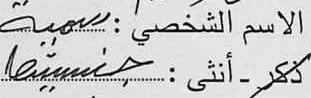 الاسم الشخصي : سمية
ذكر - أنثى : جنسيتها